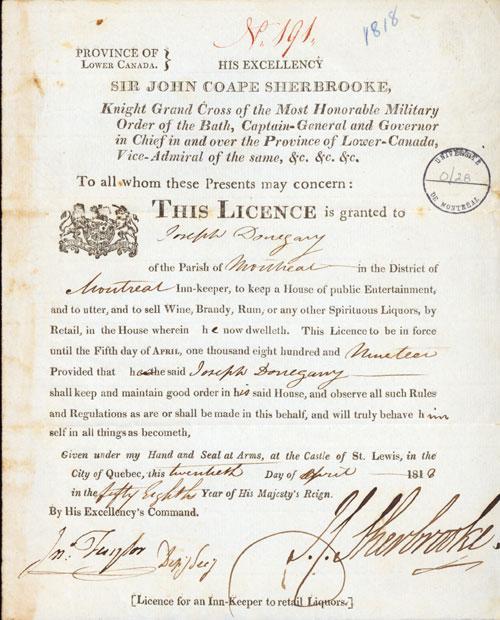 N. 191.
1818
PROVINCE OF
LOWER CANADA.
HIS EXCELLENCY
SIR JOHN COAPE SHERBROOKE,
Knight Grand Cross of the Most Honorable Military
Order of the Bath, Captain-General and Governor
in Chief in and over the Province of Lower-Canada,
Vice-Admiral of the same, &c. &c. &c.
To all whom these Presents may concern:
UNIVERSITÉ
DE MONTRÉAL
THIS LICENCE is granted to
Joseph Donegany
of the Parish of Montreal in the District of
Montreal Inn-keeper, to keep a House of public Entertainment,
and to utter, and to sell Wine, Brandy, Rum, or any other Spirituous Liquors, by
Retail, in the House wherein he now dwelleth. This Licence to be in force
until the Fifth day of APRIL, one thousand eight hundred and Nineteen
Provided that he the said Joseph Donegany
shall keep and maintain good order in his said House, and observe all such Rules
and Regulations as are or shall be made in this behalf, and will truly behave him
self in all things as becometh,
Given under my Hand and Seal at Arms, at the Castle of St. Lewis, in the
City of Quebec, this twentieth Day of April 1818
in the fifty Eighth Year of His Majesty's Reign.
By His Excellency's Command.
Jno. Taylor Depy Secy
J. C. Sherbrooke.
[Licence for an Inn-Keeper to retail Liquors.]